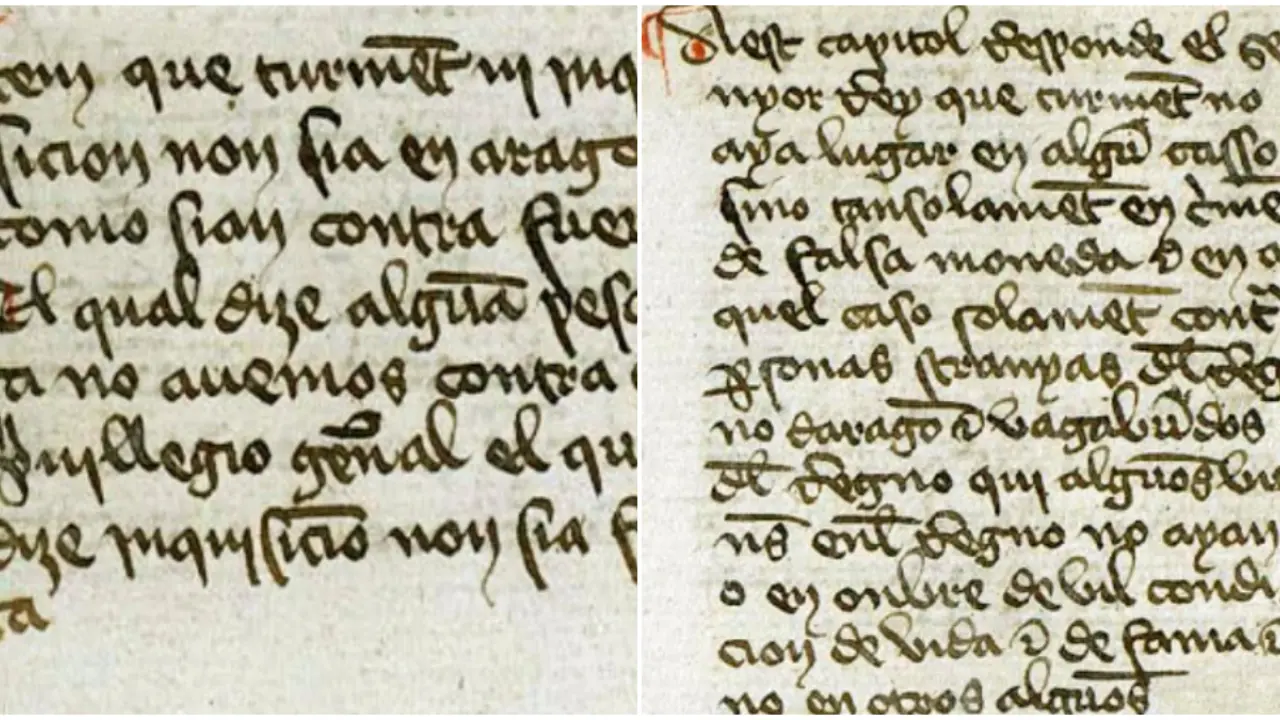 tem que turmēt ni inq
sicion non sia en arago
como sian contra fuer
El qual dize algūa peso
ta no auemos contra
Priuillegio gēn̄al el qu
dize inquisiciō non sia f
ta
Aest capitol Responde el se
nyor Rey que turmēt no
aya lugar en algū casso
sino tansolamēt en c̓me
de falsa moneda ⁊ en a
quel caso solamēt cont̄
ꝑsonas stranyas dl̄ Reg
no daragō ⁊ vagabūdos
dl̄ Regno qui algūos bi
ns̄ enl̄ Regno no ayan
o en onbre de vil condi
cion de vida ⁊ de fama ⁊
no en otros algūos